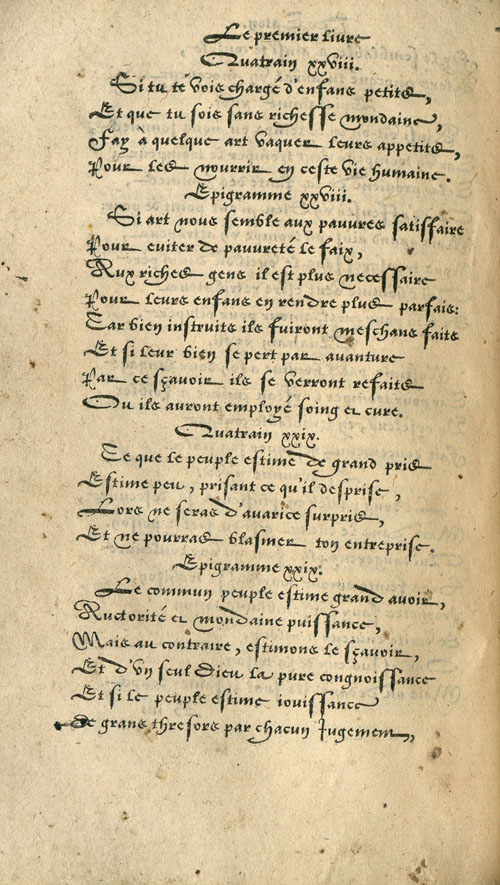 Le premier liure
Quatrain xxviii.
Si tu té vois chargé d'enfans petits,
Et que tu sois sans richesse mondaine,
Fay à quelque art vaquer leurs appetits,
Pour les nourrir en ceste vie humaine.
Epigramme xxviii.
Si art nous semble aux pauures satisfaire
Pour euiter de pauureté le faix,
Aux riches gens il est plus necessaire
Pour leurs enfans en rendre plus parfais:
Car bien instruits ils fuiront meschans faits
Et si leur bien se pert par auanture
Par ce sçauoir ils se verront refaits
Ou ils auront employé soing et cure.
Quatrain xxix.
Ce que le peuple estime de grand pris
Estime peu, prisant ce qu'il desprise,
Lors ne seras d'auarice surpris,
Et ne pourras blasmer ton entreprise.
Epigramme xxix.
Le commun peuple estime grand auoir,
Auctorité et mondaine puissance,
Mais au contraire, estimons le sçauoir,
Et d'vn seul Dieu la pure congnoissance
Et si le peuple estime iouissance
de grans thresors par chacun Iugement,